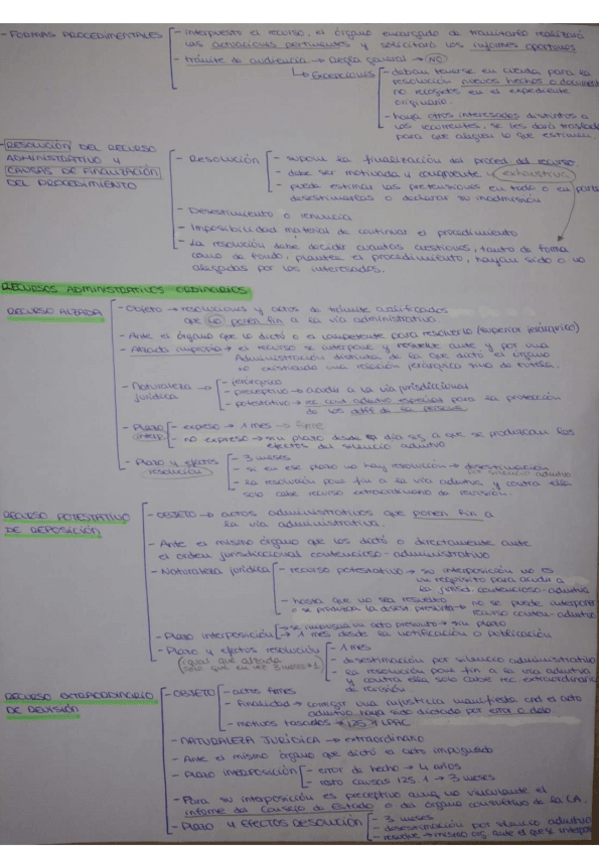 - FORMAS PROCEDIMENTALES
- interpuesto el recurso, el órgano encargado de tramitarlo realizará
las actuaciones pertinentes y solicitará los informes oportunos
- trámite de audiencia → Regla general → NO
↳ Excepciones
- deban tenerse en cuenta para la
resolución nuevos hechos o documentos
no recogidos en el expediente
originario.
- haya otros interesados distintos a
los recurrentes, se les dará traslado
para que aleguen lo que estimen.
- RESOLUCIÓN DEL RECURSO
ADMINISTRATIVO Y
CAUSAS DE FINALIZACIÓN
DEL PROCEDIMIENTO
- Resolución
- supone la finalización del proced. del recurso.
- debe ser motivada y congruente y exhaustiva
- puede estimar las pretensiones en todo o en parte
desestimarlas o declarar su inadmisión
- Desestimiento o renuncia
- Imposibilidad material de continuar el procedimiento
- La resolución debe decidir cuantas cuestiones, tanto de forma
como de fondo, plantee el procedimiento, hayan sido o no
alegadas por los interesados.
RECURSOS ADMINISTRATIVOS ORDINARIOS
RECURSO ALZADA
- Objeto → resoluciones y actos de trámite cualificados
que NO ponen fin a la vía administrativa
- Ante el órgano que lo dictó o el competente para resolverlo (superior jerárquico)
- Alzada impropia → el recurso se interpone y resuelve ante y por una
Administración distinta de la que dictó el órgano
no existiendo una relación jerárquica sino de tutela.
- Naturaleza →
jurídica
- jerárquico
- preceptivo → acudir a la vía jurisdiccional
- potestativo → rec. cont. admtvo especial para la protección
de los de la persona
- Plazo
(interp.)
- expreso → 1 mes → firme
- no expreso → sin plazo desde el día sig. a que se produzcan los
efectos del silencio admtvo
- Plazo y efectos
resolución
- 3 meses
- si en ese plazo no hay resolución → desestimación
por silencio admtvo
- la resolución pone fin a la vía admtva, y contra ella
solo cabe recurso extraordinario de revisión.
RECURSO POTESTATIVO
DE REPOSICIÓN
- OBJETO → actos administrativos que ponen fin a
la vía administrativa.
- Ante el mismo órgano que los dictó o directamente ante
el orden jurisdiccional contencioso-administrativo
- Naturaleza jurídica
- recurso potestativo → su interposición no es
un requisito para acudir a
la jurisd. contencioso-admtva
- hasta que no sea resuelto
o se produzca la desest. presunta → no se puede interponer
recurso conten-admtvo
- Plazo interposición
→ se impugna un acto presunto → sin plazo
→ 1 mes desde la notificación o publicación
- Plazo y efectos resolución
(igual que alzada
solo que en vez 3 meses → 1)
- 1 mes
- desestimación por silencio administrativo
- la resolución pone fin a la vía admtva
y contra ella solo cabe rec. extraordinario
de revisión
RECURSO EXTRAORDINARIO
DE REVISIÓN
- OBJETO
- actos firmes
- Finalidad → corregir una injusticia manifiesta cnd el acto
admtvo haya sido dictado por error o dolo.
- motivos tasados → 125.1 LPAC
- NATURALEZA JURÍDICA → extraordinario
- Ante el mismo órgano que dictó la acto impugnado
- Plazo interposición
- error de hecho → 4 años
- resto causas 125.1 → 3 meses
- Para su interposición es preceptivo aunq. no vinculante el
informe del Consejo de Estado o del órgano consultivo de la CA.
- Plazo y EFECTOS RESOLUCIÓN
- 3 meses
- desestimación por silencio admtvo
- resuelve → mismo org. ante el que se interpone